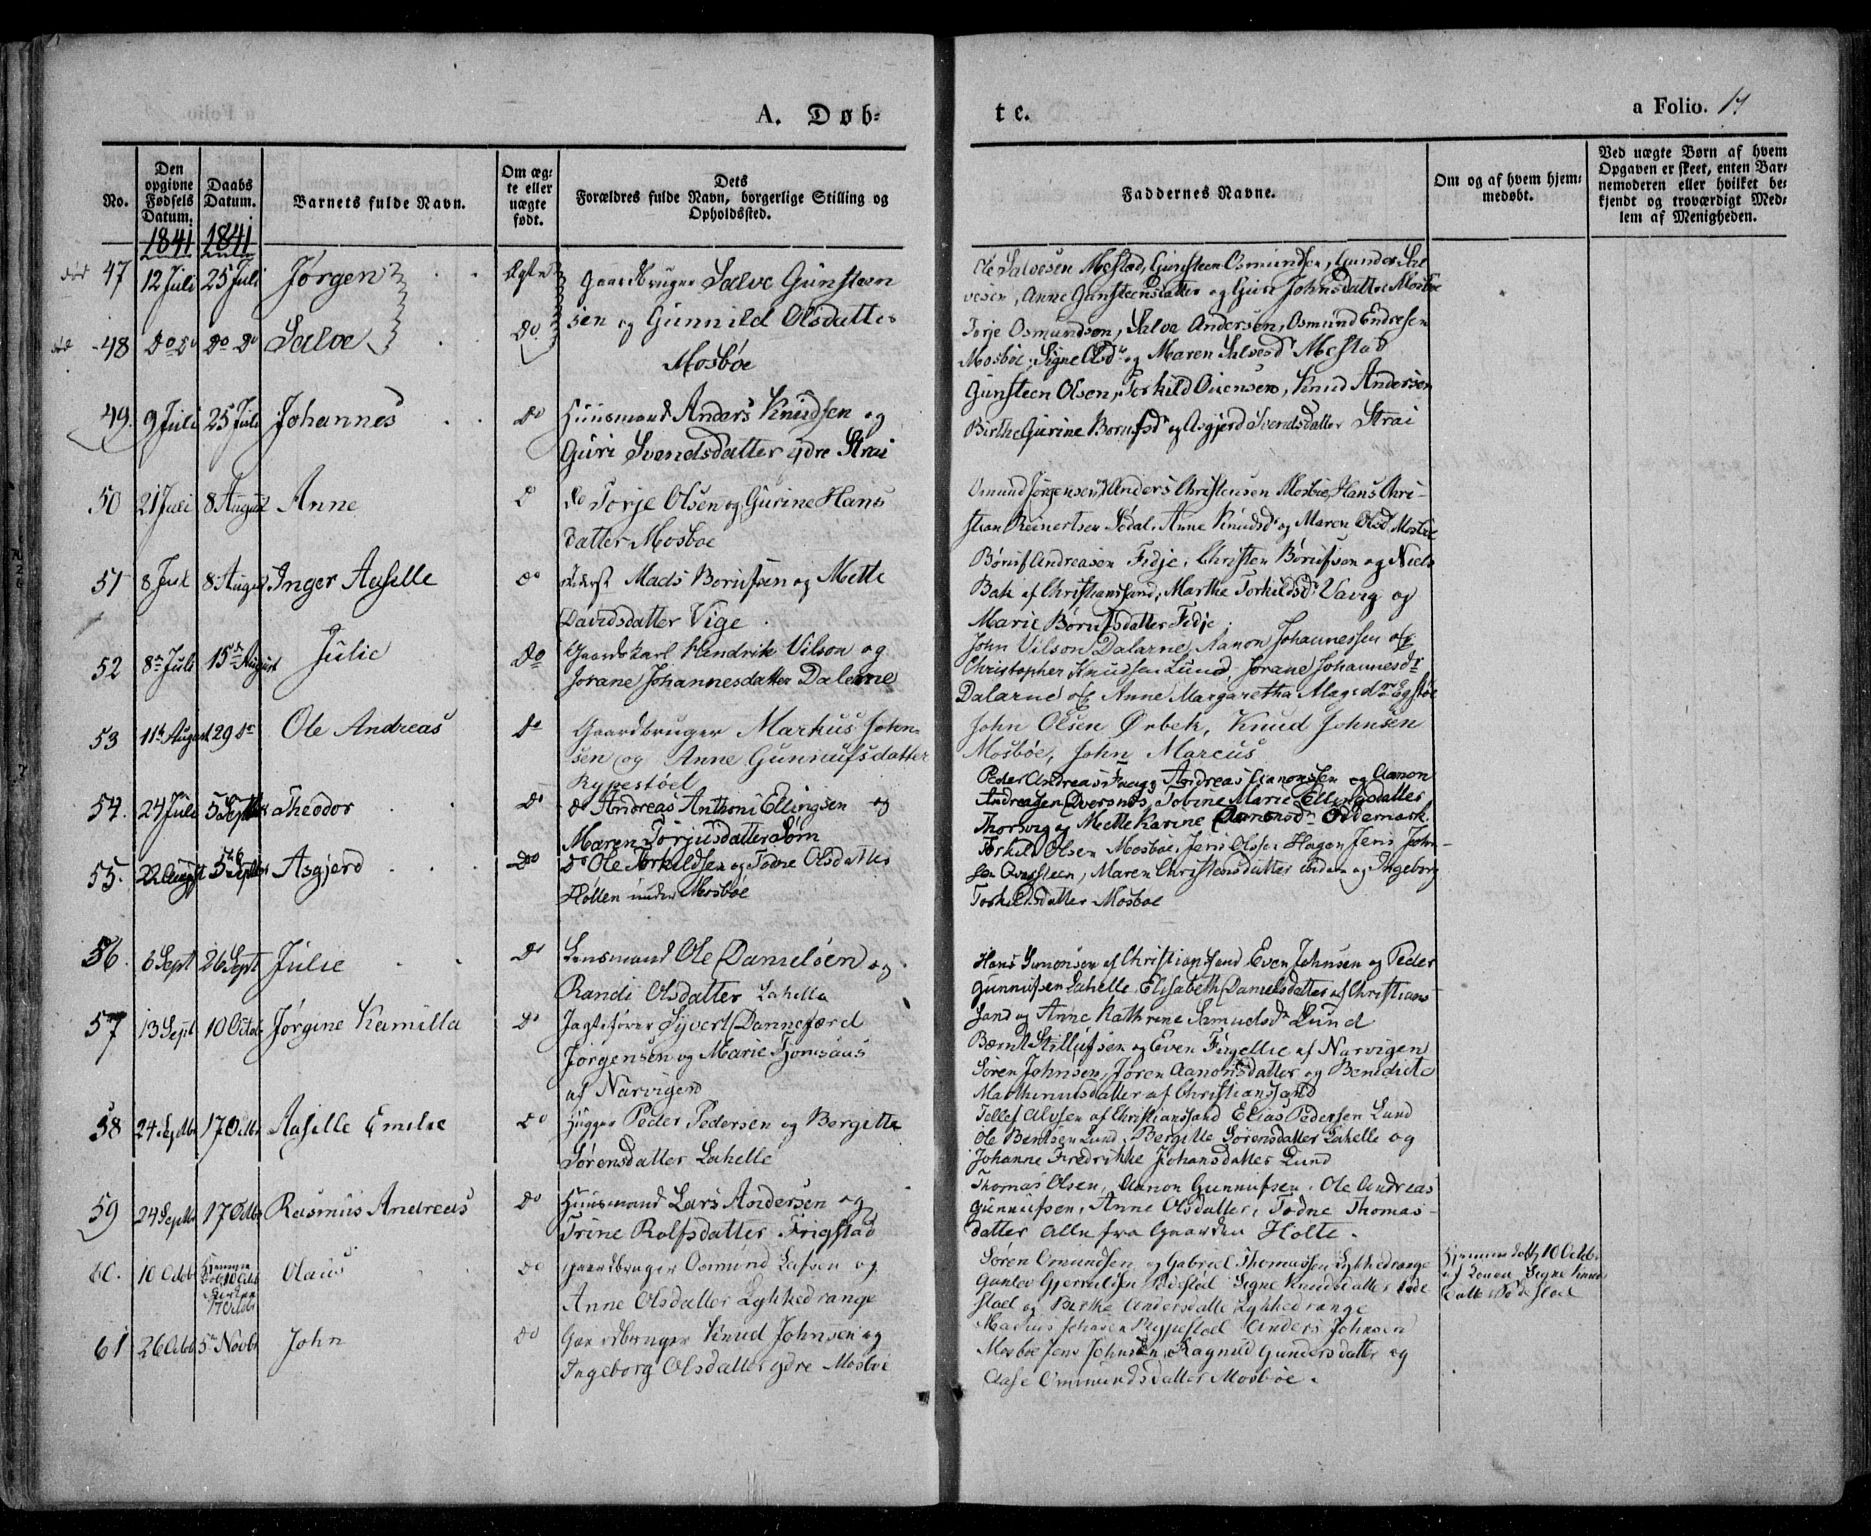 A. Døb-
te.
a Folio. 17
No.
Den opgivne Fødsels Datum.
Daabs Datum.
Barnets fulde Navn.
Om ægte eller uægte født.
Dets
Forældres fulde Navn, borgerlige Stilling og
Opholdssted.
Faddernes Navne.
Om og af hvem hjem-
medøbt.
Ved uægte Børn af hvem
Opgaven er skeet, enten Bar-
nemoderen eller hvilket be-
kjendt og troværdigt Med-
lem af Menigheden.
1841 1841
død 47 12 Juli 25 Juli Jørgen Ægte Gaardbruger Salve Gunsteen
sen og Gunnild Olsdatter
Mosbøe
Ole Salvesen Mestad, Gunsteen Osmundsen, Gunder Sal
vesen, Anne Gunsteensdatter og Guri Johnsdatter Mosbøe
48 Do Do Do Do Salve Do
Torje Osmundsen, Salve Andersen, Osmund Endresen
Mosbøe, Signe Olsd og Maren Salvesd Mestad
49. 9 Juli 25 Juli Johannes Do Huusmand Anders Knudsen og
Guri Svendsdatter ydre Strai
Gunsteen Olsen, Torkild Ovensen, Knud Andersen
Birthe Gurine Borufsd og Asgjerd Svendsdatter Strai
50 21 Juli 8 August Anne Do Torje Olsen og Gurine Hans
datter Mosboe
Omund Jørgensen og Anders Christensen Mosbøe, Hans Chri-
stian Reinertsen Sødal, Anne Knudsd og Maren Olsd Mosbøe
51 8 Juli 8 August Inger Aaselle Do Mads Borufsen og Mette
Davidsdatter Vige
Børuf Andreasen Fidje, Christen Børufsen og Niels
Bak af Christianssand, Marthe Torkildsd Vavig og
Marie Børufsdatter Fidje
52 8de Juli 15de August Julie Do Gaardskarl Hendrik Vilson og
Jorane Johannesdatter Dalerne
John Vilson Dalarne, Aanon Johannessen og
Christopher Knudsen Lund, Jorane Johannesdr
Dalarne og Anne Margaretha Magsd Egstøe
53 11te August 29 Do Ole Andreas Do Gaardbruger Markus John-
sen og Anne Gunnufsdatter
Rypestøel
John Olsen Ørbek, Knud Johnsen
Mosbøe, John Marcus
54. 24 Juli 5 Septbr Theodor Do Do Andreas Anthoni Ellingsen og
Maren Torjusdatter Søm
Peder Andreas Faag, Andreas Aanonsen og Aanon
Andreasen Dversnes, Tobine Marie Ellingsdatter
Thorsvig og Mette Karine Aanonsd Oddemark.
55. 22 August 5 Septbr Asgjerd Do Do Ole Torkildsen og Todne Olsdatter
Holten under Mosbøe
Torkild Olsen Mosbøe, Jens Olsen Hagen Jens John-
sen Qvarsteen, Maren Christensdatter ibidem og Ingeborg
Torkildsdatter Mosboe
56. 6 Sept 26 Sept Julie Do Lensmand Ole Danielsen og
Randi Olsdatter Lahelle
Hans Simonsen af Christianssand Even Johnsen og Peder
Gunnufsen Lahelle, Elisabeth Danielsdatter af Christians-
sand og Anne Kathrine Samuelsd Lund
57 13 Sept 10 Octob Jørgine Kamilla Do Jagtefører Syvert Dannefærd
Jørgensen og Marie Tjomsaas
af Narvigen
Bærnt Stillufsen og Even Fugellie af Narvigen
Søren Johnsen, Joren Aanonsdatter og Benedicte
Mathenusdatter af Christianssand
58 24 Septbr 17 Octbr Aaselle Emilie Do Hugger Peder Pedersen og Bergitte
Sørensdatter Lahelle
Tellef Alvsen af Christianssand Elias Pedersen Lund
Ole Bentsen Lund, Bergitte Sørensdatter Lahelle og
Johanne Fredrikke Johansdatter Lund
59 24 Septbr 17 Octbr Rasmus Andreas Do Huusmand Lars Andersen og
Trine Rolfsdatter Frigstad
Thomas Olsen, Aanon Gunnufsen, Ole Andreas
Gunnufsen, Anne Olsdatter, Todne Thomas-
datter Alle fra Gaarden Holte.
60. 10 Octob 10 Octb 17 Octbr Olaus Do Gaardbruger Osmund Lafsen og
Anne Olsdatter Lykkedrange
Søren Osmundsen og Gabriel Thomassen Lykkedrange
Gunlev Gjermundsen Ødestad Signe Knudsdatter Øde
stad og Birthe Andersdatter Lykkedrange
Hjemmedøbt 10 Octob
Signe Knuds
datter Ødestad
61 26 Octob 5te Novbr John Do Gaardbruger Knud Johnsen og
Ingeborg Olsdatter ydre Mosbøe
Markus Johnsen Ryppestøel Anders Johnsen
Mosbøe Jens Johnsen, Ragnild Gundersdatter og
Aase Ommundsdatter Mosbøe.